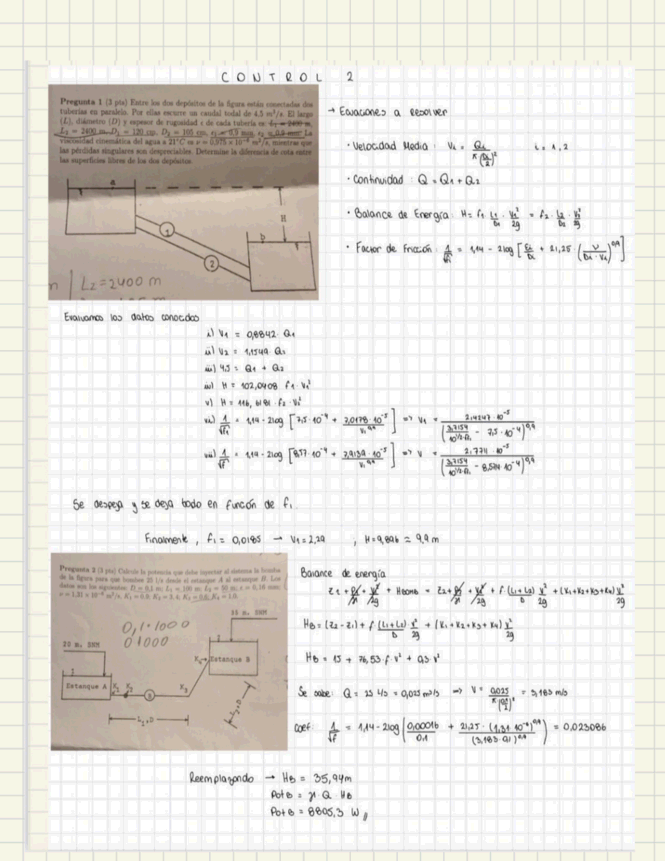 CONTROL 2
Pregunta 1 (3 pts) Entre los dos depósitos de la figura están conectadas dos
tuberías en paralelo. Por ellas escurre un caudal total de 4.5 m³/s. El largo
(L), diámetro (D) y espesor de rugosidad ε de cada tubería es: L₁ = 2400 m,
L₂ = 2400 m, D₁ = 120 cm, D₂ = 105 cm, La
viscosidad cinemática del agua a 21°C es ν = 0.975 × 10⁻⁶ m²/s, mientras que
las pérdidas singulares son despreciables. Determine la diferencia de cota entre
las superficies libres de los dos depósitos.
a
H
b
1
2
n | L2=2400 m
→ Ecuaciones a resolver
· Velocidad Media : Vi = Qi / π(Di/2)² i = 1,2
· Continuidad : Q = Q1 + Q2
· Balance de Energía : H = f1 · L1/D1 · V1²/2g = f2 · L2/D2 · V2²/2g
· Factor de Fricción : 1/√fi = 1,14 - 2log [ εi/Di + 21,25 · (ν / Di · Vi)^0,9 ]
Evaluamos los datos conocidos
i) V1 = 0,8842 · Q1
ii) V2 = 1,1549 · Q2
iii) 4,5 = Q1 + Q2
iv) H = 102,0408 f1 · V1²
v) H = 116, · f2 · V2²
vi) 1/√f1 = 1,14 - 2log [ 2,5·10⁻⁴ + 2,0178·10⁻⁵ / V1^0,9 ] => V1 =
vii) 1/√f = 1,14 - 2log [ + 2,9139·10⁻⁵ / V^0,9 ] => V =
Se despeja y se deja todo en función de f1.
Finalmente , f1 = 0,0185 → V1 = 2,29 , H = 9,896 ≈ 9,9 m
Pregunta 2 (3 pts) Calcule la potencia que debe inyectar al sistema la bomba
de la figura para que bombee 25 l/s desde el estanque A al estanque B. Los
datos son los siguientes: D = 0.1 m; L₁ = 100 m; L₂ = 50 m; ε = 0.16 mm;
ν = 1,31 × 10⁻⁶ m²/s,
0,1·1000
01000
35 m. SNM
20 m. SNM
Estanque B
Estanque A
L₁,D
L₂,D
Balance de energía
Z1 + P1/γ + V1²/2g + Hbomb = Z2 + P2/γ + V2²/2g + f · (L1+L2)/D V²/2g + (K1+K2+K3+K4) V²/2g
HB = (Z2 - Z1) + f (L1+L2)/D V²/2g + (K1+K2+K3+K4) V²/2g
HB = 15 + 76,53 f V² + 0,3 V²
Se sabe: Q = 25 l/s = 0,025 m³/s => V = 0,025 / π(0,1/2)² = 3,183 m/s
Coef: 1/√f = 1,14 - 2log ( 0,00016/0,1 + 21,25 · (1,31·10⁻⁶)^0,9 / (3,183 · 0,1)^0,9 ) = 0,023086
Reemplazando → HB = 35,94m
Pot B = γ · Q · HB
Pot B = 8805,3 W //